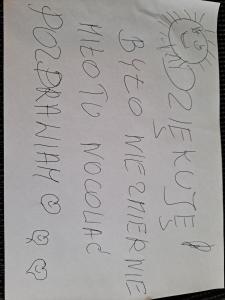 DZIĘKUJĘ!
BYŁO NIEZMIERNIE
MIŁO TU NOCOWAĆ
POZDRAWIAM